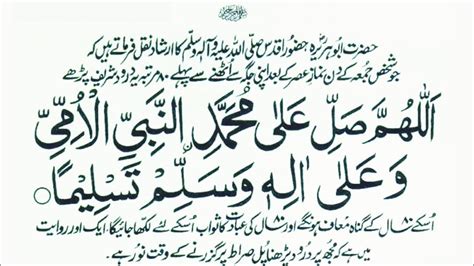 حضرت ابوہریرہؓ حضورِ اقدس صلی اللہ علیہ وآلہ وسلم کا ارشاد نقل فرماتے ہیں کہ
جو شخص جمعہ کے دن نماز عصر کے بعد اپنی جگہ کے اُٹھنے سے پہلے ۸۰ مرتبہ یہ درود شریف پڑھے
اَللّٰهُمَّ صَلِّ عَلٰى مُحَمَّدِ النَّبِيِّ الْاُمِّيِّ
وَعَلٰى اٰلِهٖ وَسَلِّمْ تَسْلِيْمًا
اُسکے ۸۰ سال کے گناہ معاف ہونگے اور ۸۰ سال کی عبادت کا ثواب اُسکے لئے لکھا جائیگا۔ ایک اور روایت
میں ہے کہ مجھ پر درود پڑھنا پُل صراط پر گزرنے کے وقت نور ہے۔